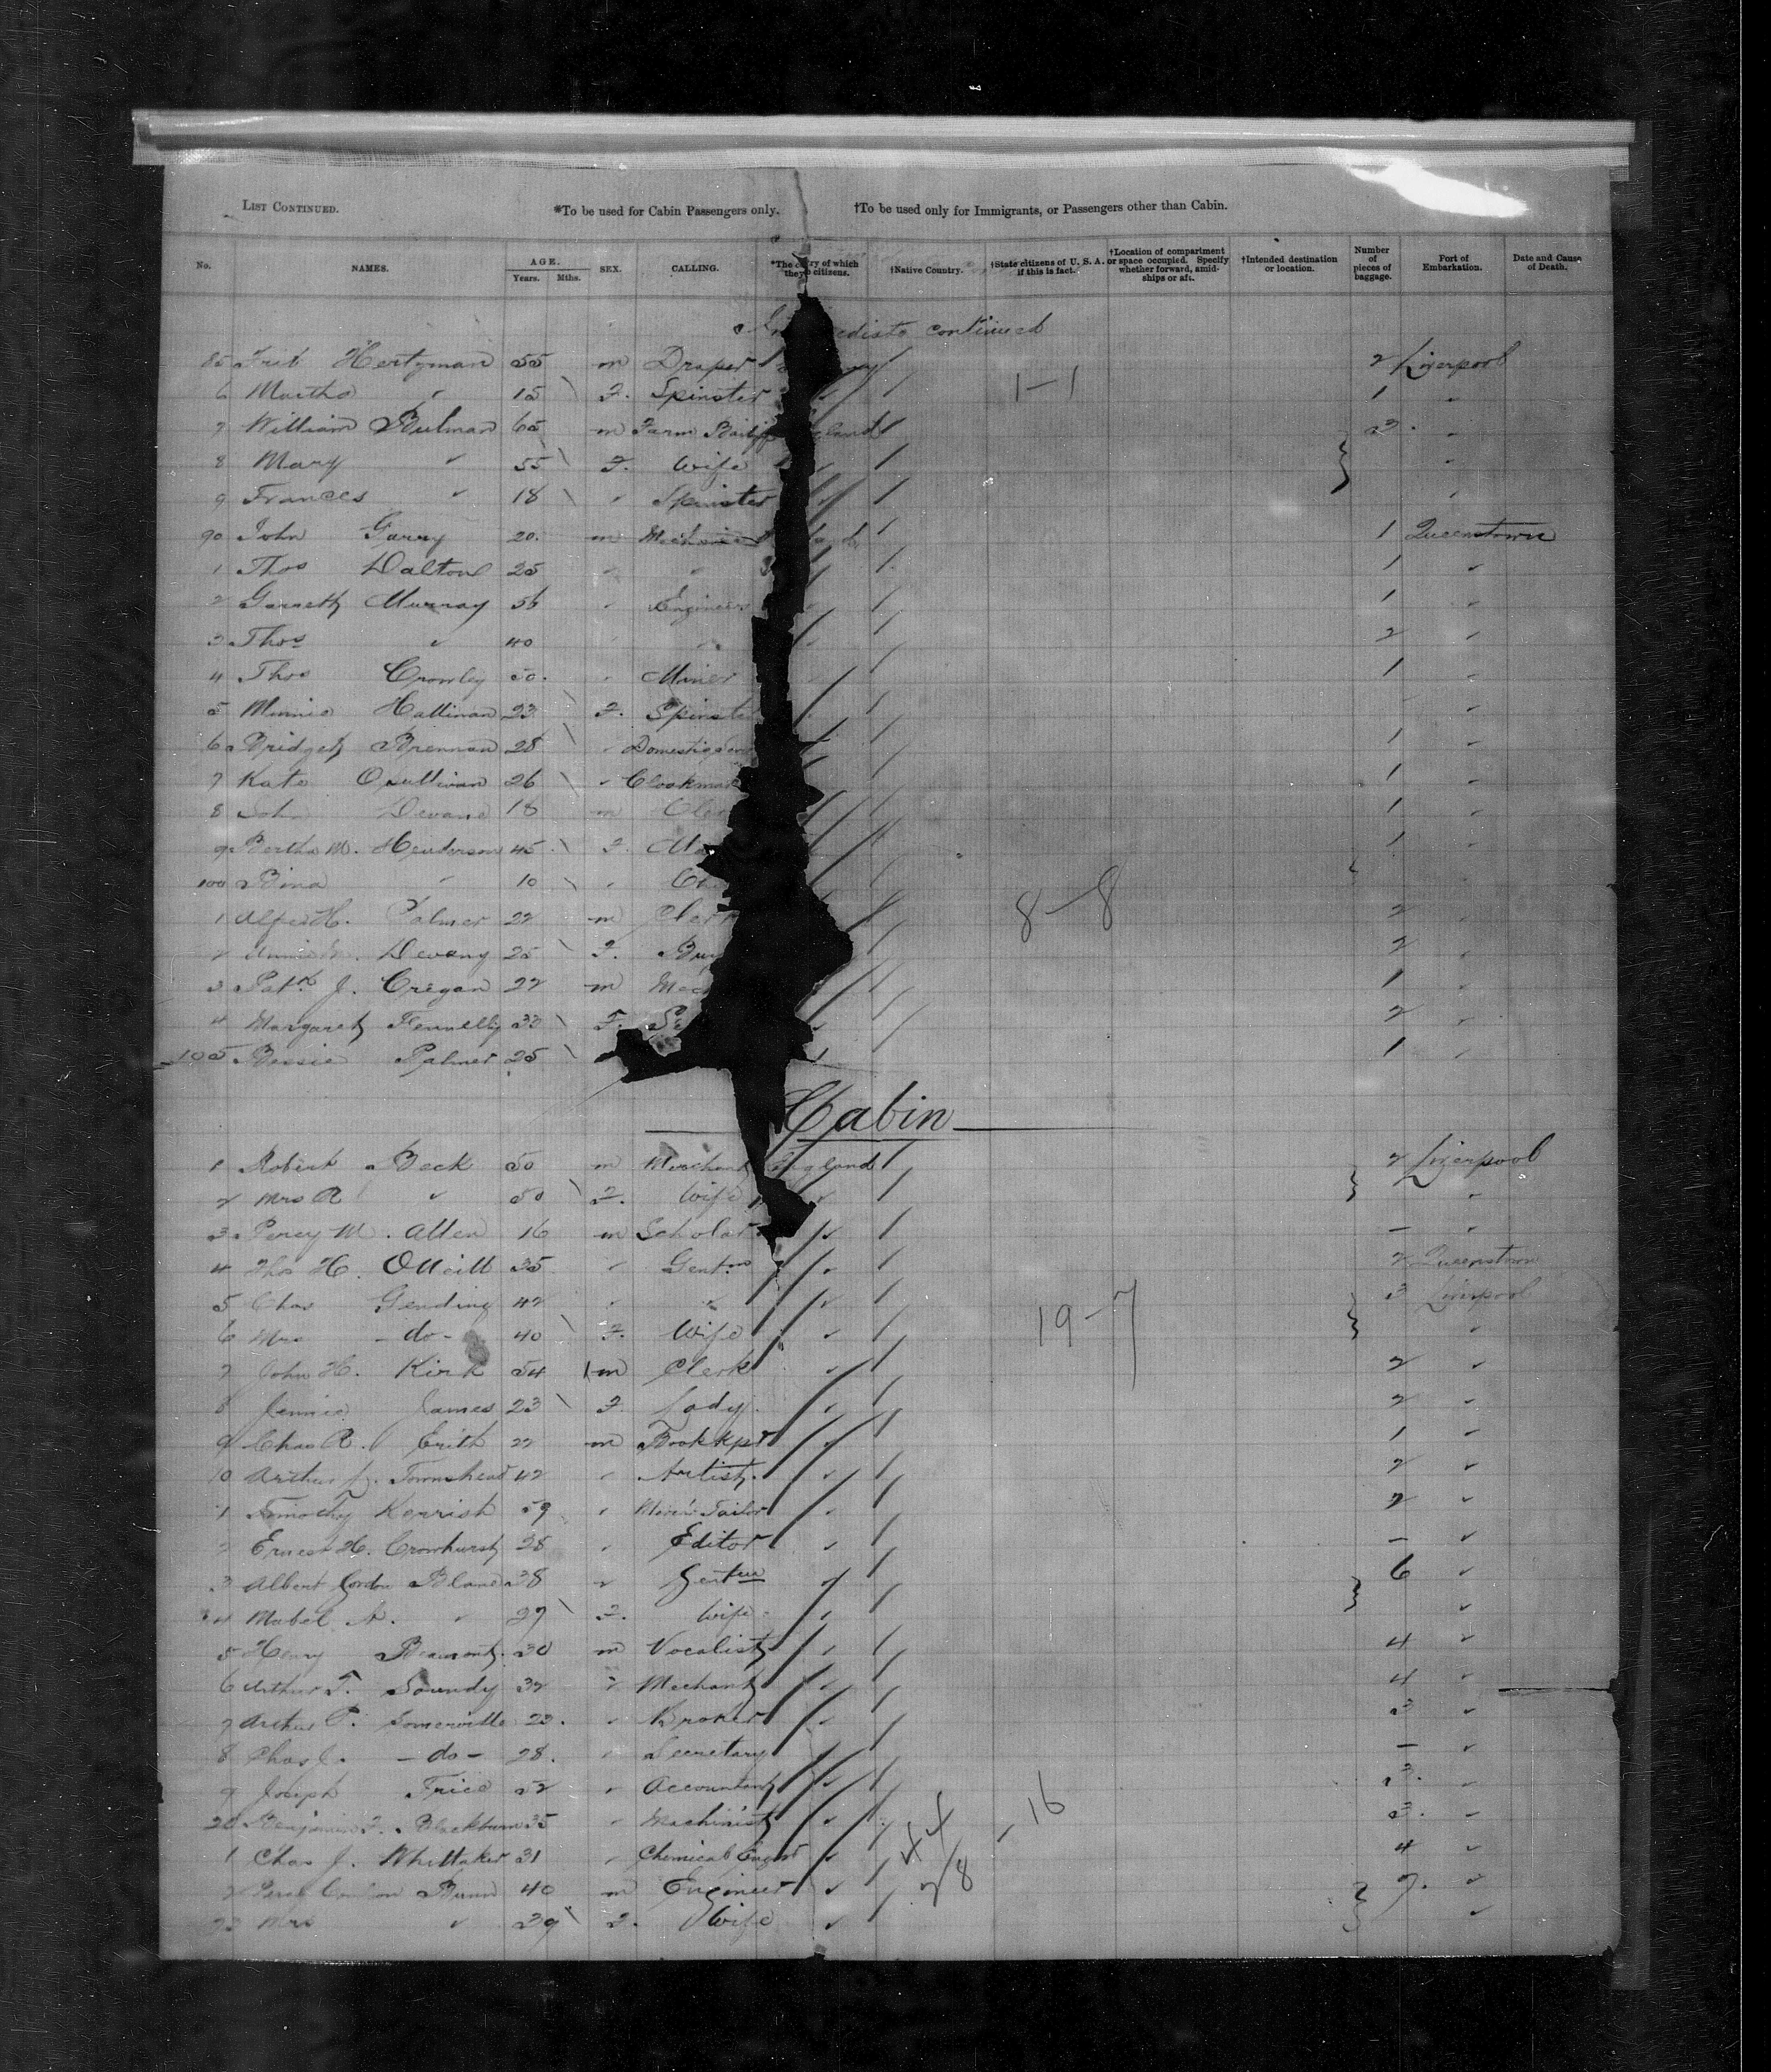 LIST CONTINUED. *To be used for Cabin Passengers only. †To be used only for Immigrants, or Passengers other than Cabin.
No. NAMES. AGE. Years. Mths. SEX. CALLING. *The country of which they citizens. †Native Country. †State citizens of U. S. A. if this is fact. †Location of compartment or space occupied. Specify whether forward, amidships or aft. †Intended destination or location. Number of pieces of baggage. Port of Embarkation. Date and Cause of Death.
continued
85 Hertzman 55 m Draper 2 Liverpool
6 Martha " 15 F. Spinster 1 "
7 William Bulman 65 m Farm Bailiff 3 "
8 Mary " 55 F. Wife "
9 Frances " 18 " Spinster "
90 John Garry 20 m Mechanic 1 Queenstown
1 Thos Dalton 25 " " 1 "
2 Garrett Murray 56 " Engineer 1 "
3 Thos " 40 2 "
4 Thos Crowley 50 " Miner 1 "
5 Minnie Hallinan 23 F. "
6 Bridget Brennan 28 " Domestic 1 "
7 Kate Osullivan 26 " 1 "
8 John Devane 18 m 1 "
9 Bertha M. Henderson 45 F. 1 "
100 Bina " 10 "
1 Alfred H. Palmer 22 m Clerk 2 "
8-8
2 Annie Devany 25 F. 2 "
3 Patk J. Cregan 22 m 1 "
4 Margaret Fennelly 33 F. 2 "
105 Bessie Palmer 25 1 "
Cabin
1 Robert Beck 50 m Merchant England 2 Liverpool
2 Mrs R " 50 F. Wife " "
3 Percy M. Allen 16 m Scholar " - "
4 Thos H. ONeill 35 " Gentn " 2 Queenstown
5 Chas Gending 42 " " " 3 Liverpool
6 Mrs -do- 40 F. Wife " "
19-7
7 John H. Kirk 54 m Clerk " 2 "
8 Jennie James 23 F. Lady " 2 "
9 Chas R. Erith 22 m Bookkpr " 1 "
10 Arthur Townshend 42 " Artist " 2 "
1 Timothy Kerrish 59 " Tailor " 2 "
2 Ernest H. Crowhurst 28 " Editor " - "
3 Albert Gordon Bland 38 " Gentn " 6 "
4 Mabel A. " 27 F. Wife " "
5 Henry Beaumont 30 m Vocalist " 4 "
6 Arthur T. Soundy 32 " Mechant " 4 "
7 Arthur P. Somerville 23 " Broker " 3 "
8 Chas J. -do- 28 " Secretary - "
9 Joseph Price 52 " Accountant " 3 "
20 Benjamin F. Blackburn 35 " Machinist " 3 "
1 Chas J. Whittaker 31 " Chemical Engnr " 4 "
2 Bunn 40 m Engineer " 7 "
23 Mrs " 39 F. Wife " "